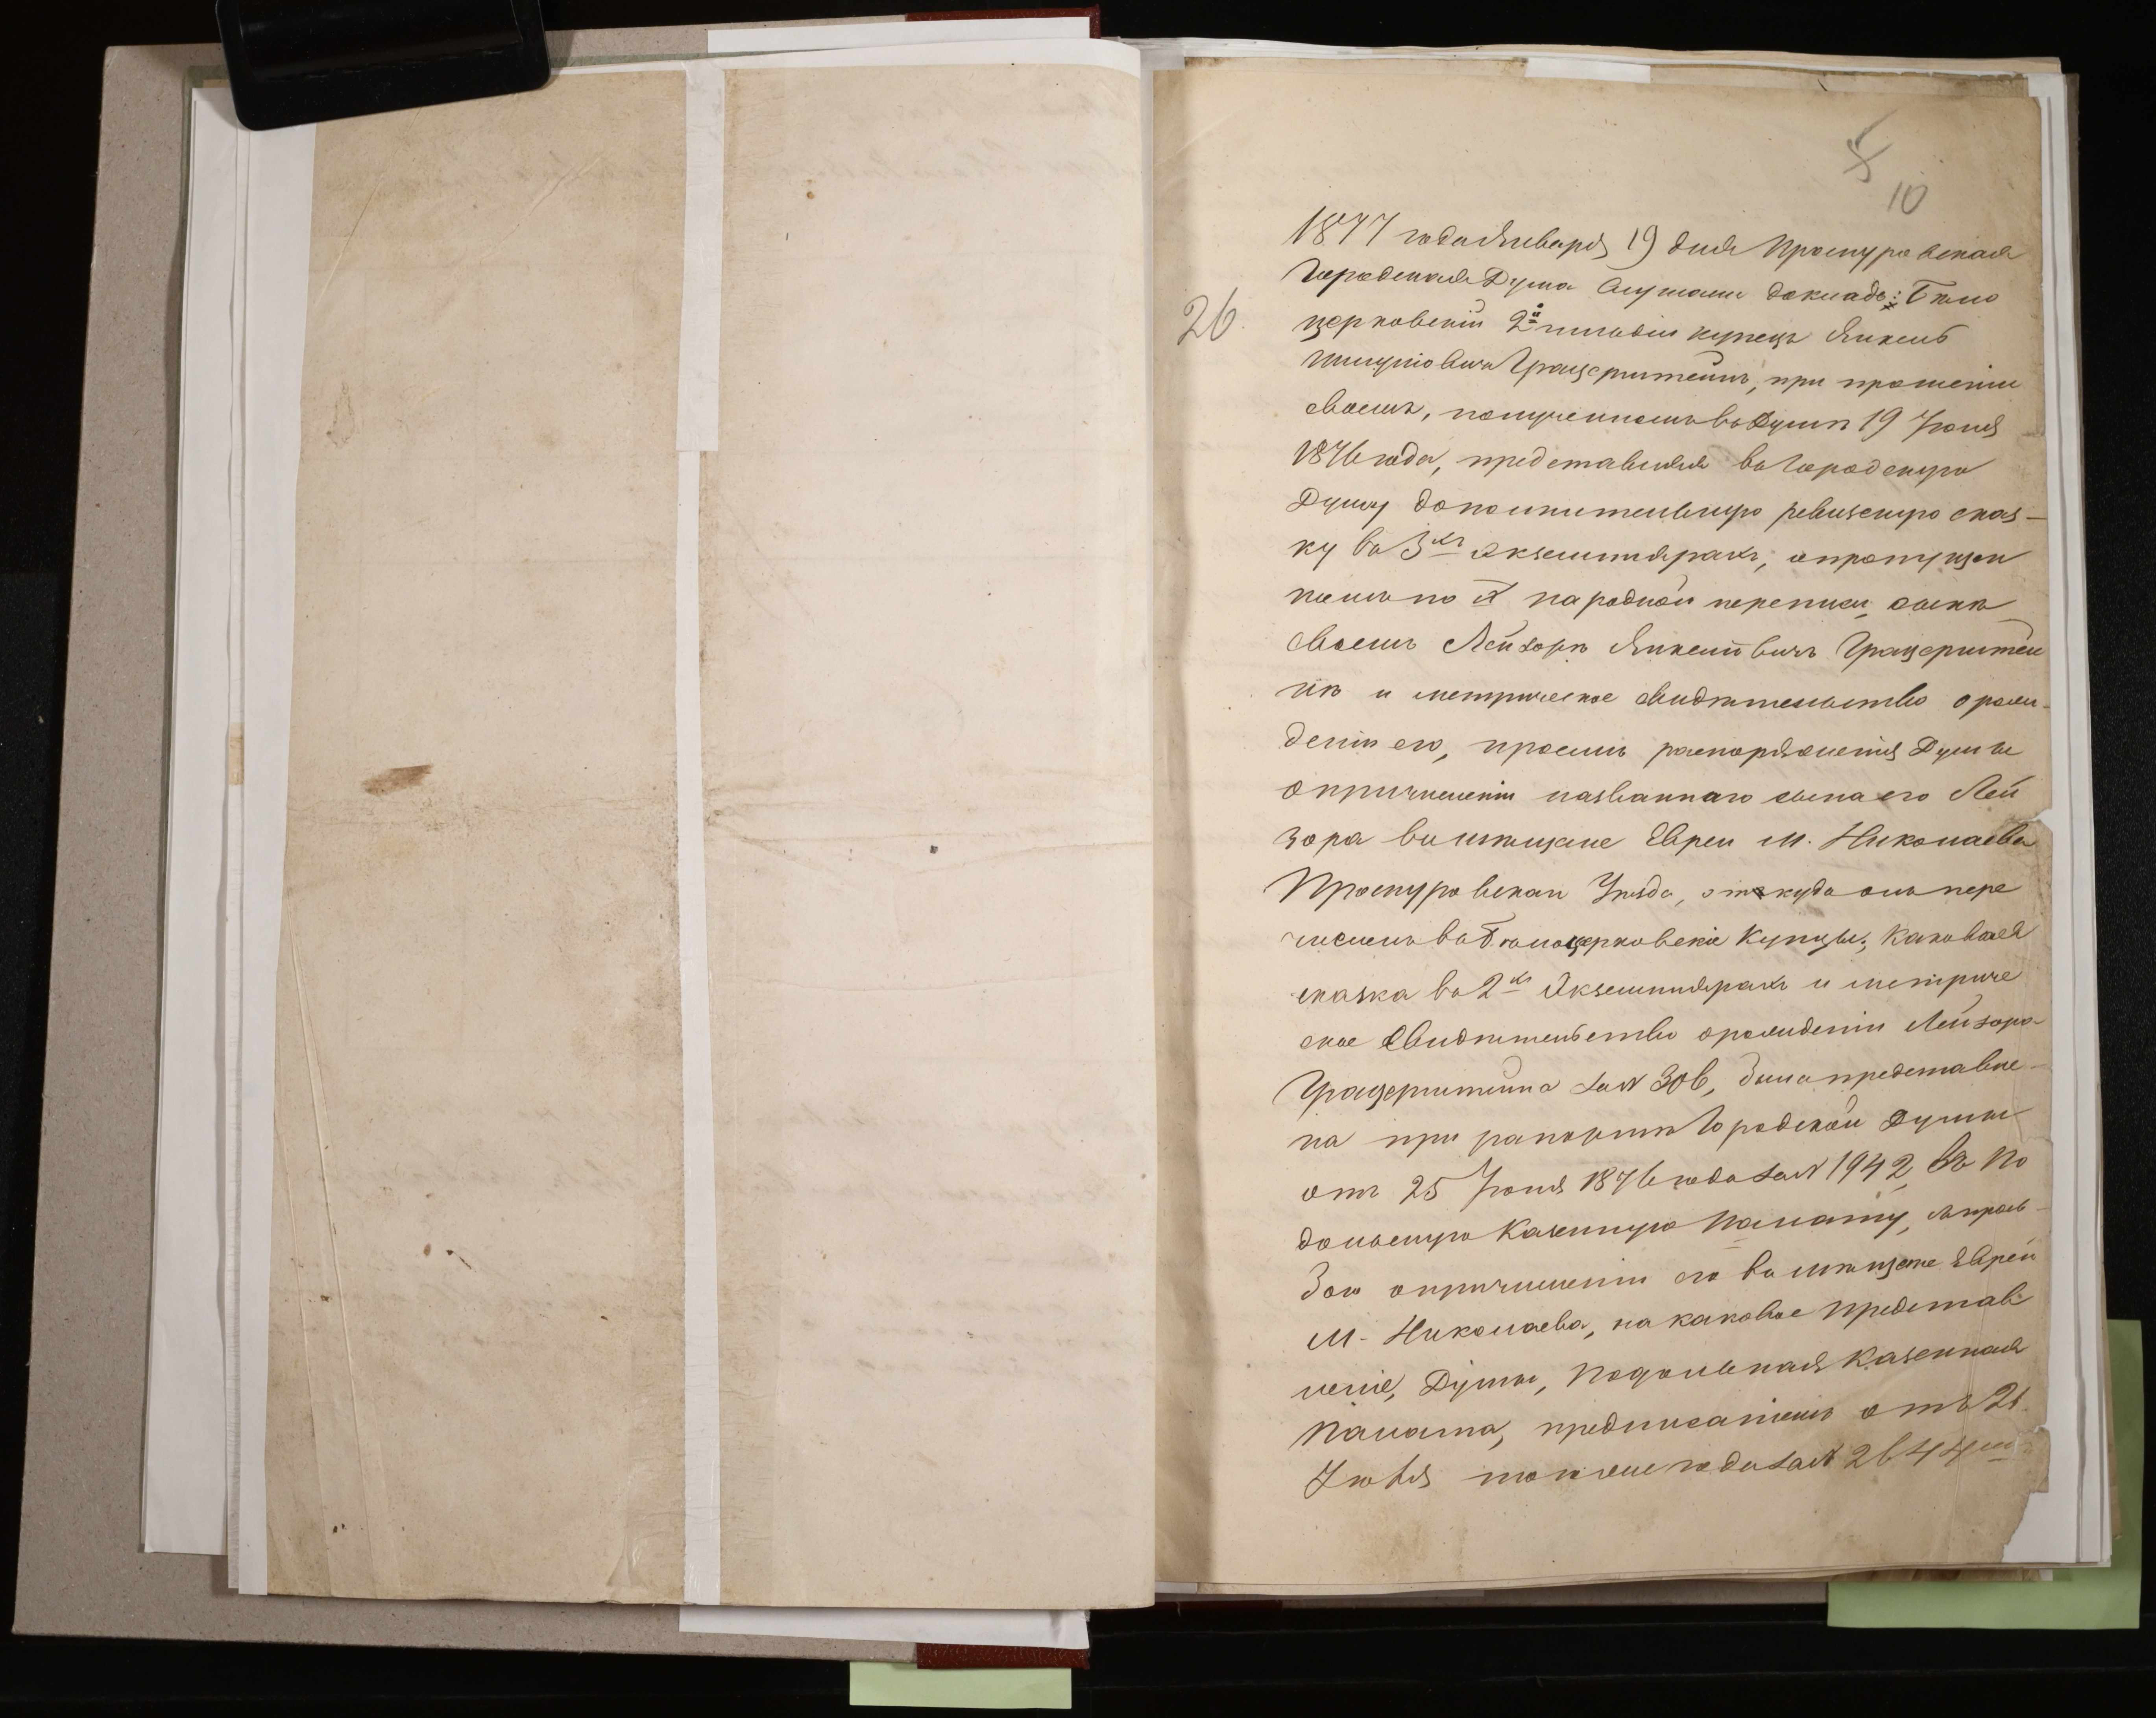 5
10
26.
1877 года Января 19 дня Проскуровская
Городская Дума Слушали докладъ: Бѣло
церковскій 2й гильдіи купецъ Янкель
Шмулiовичъ Грацерштейнъ, при прошеніи
своемъ, полученномъ въ Думѣ 19 Іюня
1876 года, представляя въ Городскую
Думу дополнительную ревизскую сказ-
ку въ 3хъ экземплярахъ, о пропущен
номъ по X народной переписи, сынѣ
своемъ Лейзорѣ Янкелiовичѣ Грацерштей
нѣ и метрическое свидѣтельство о рож-
деніи его, просилъ распоряженія Думы
о причисленіи названнаго сына его Лей
зора въ мѣщане Евреи м. Николаева
Проскуровскаго Уѣзда, откуда онъ пере
численъ въ Бѣлоцерковскіе Купцы; каковая
сказка въ 2хъ Экземплярахъ и метриче
ское Свидѣтельство о рожденіи Лейзора
Грацерштейна за № 306, была представле-
на при рапортѣ Городской Думы
отъ 25 Іюня 1876 года за № 1942, въ По
дольскую Казенную Палату, съ прось-
бою о причисленіи его въ мѣщане Евреи
м. Николаева, на каковое представ
леніе, Думы, Подольская Казенная
Палата, предписаніемъ отъ 21
Іюля того же года за № 2644